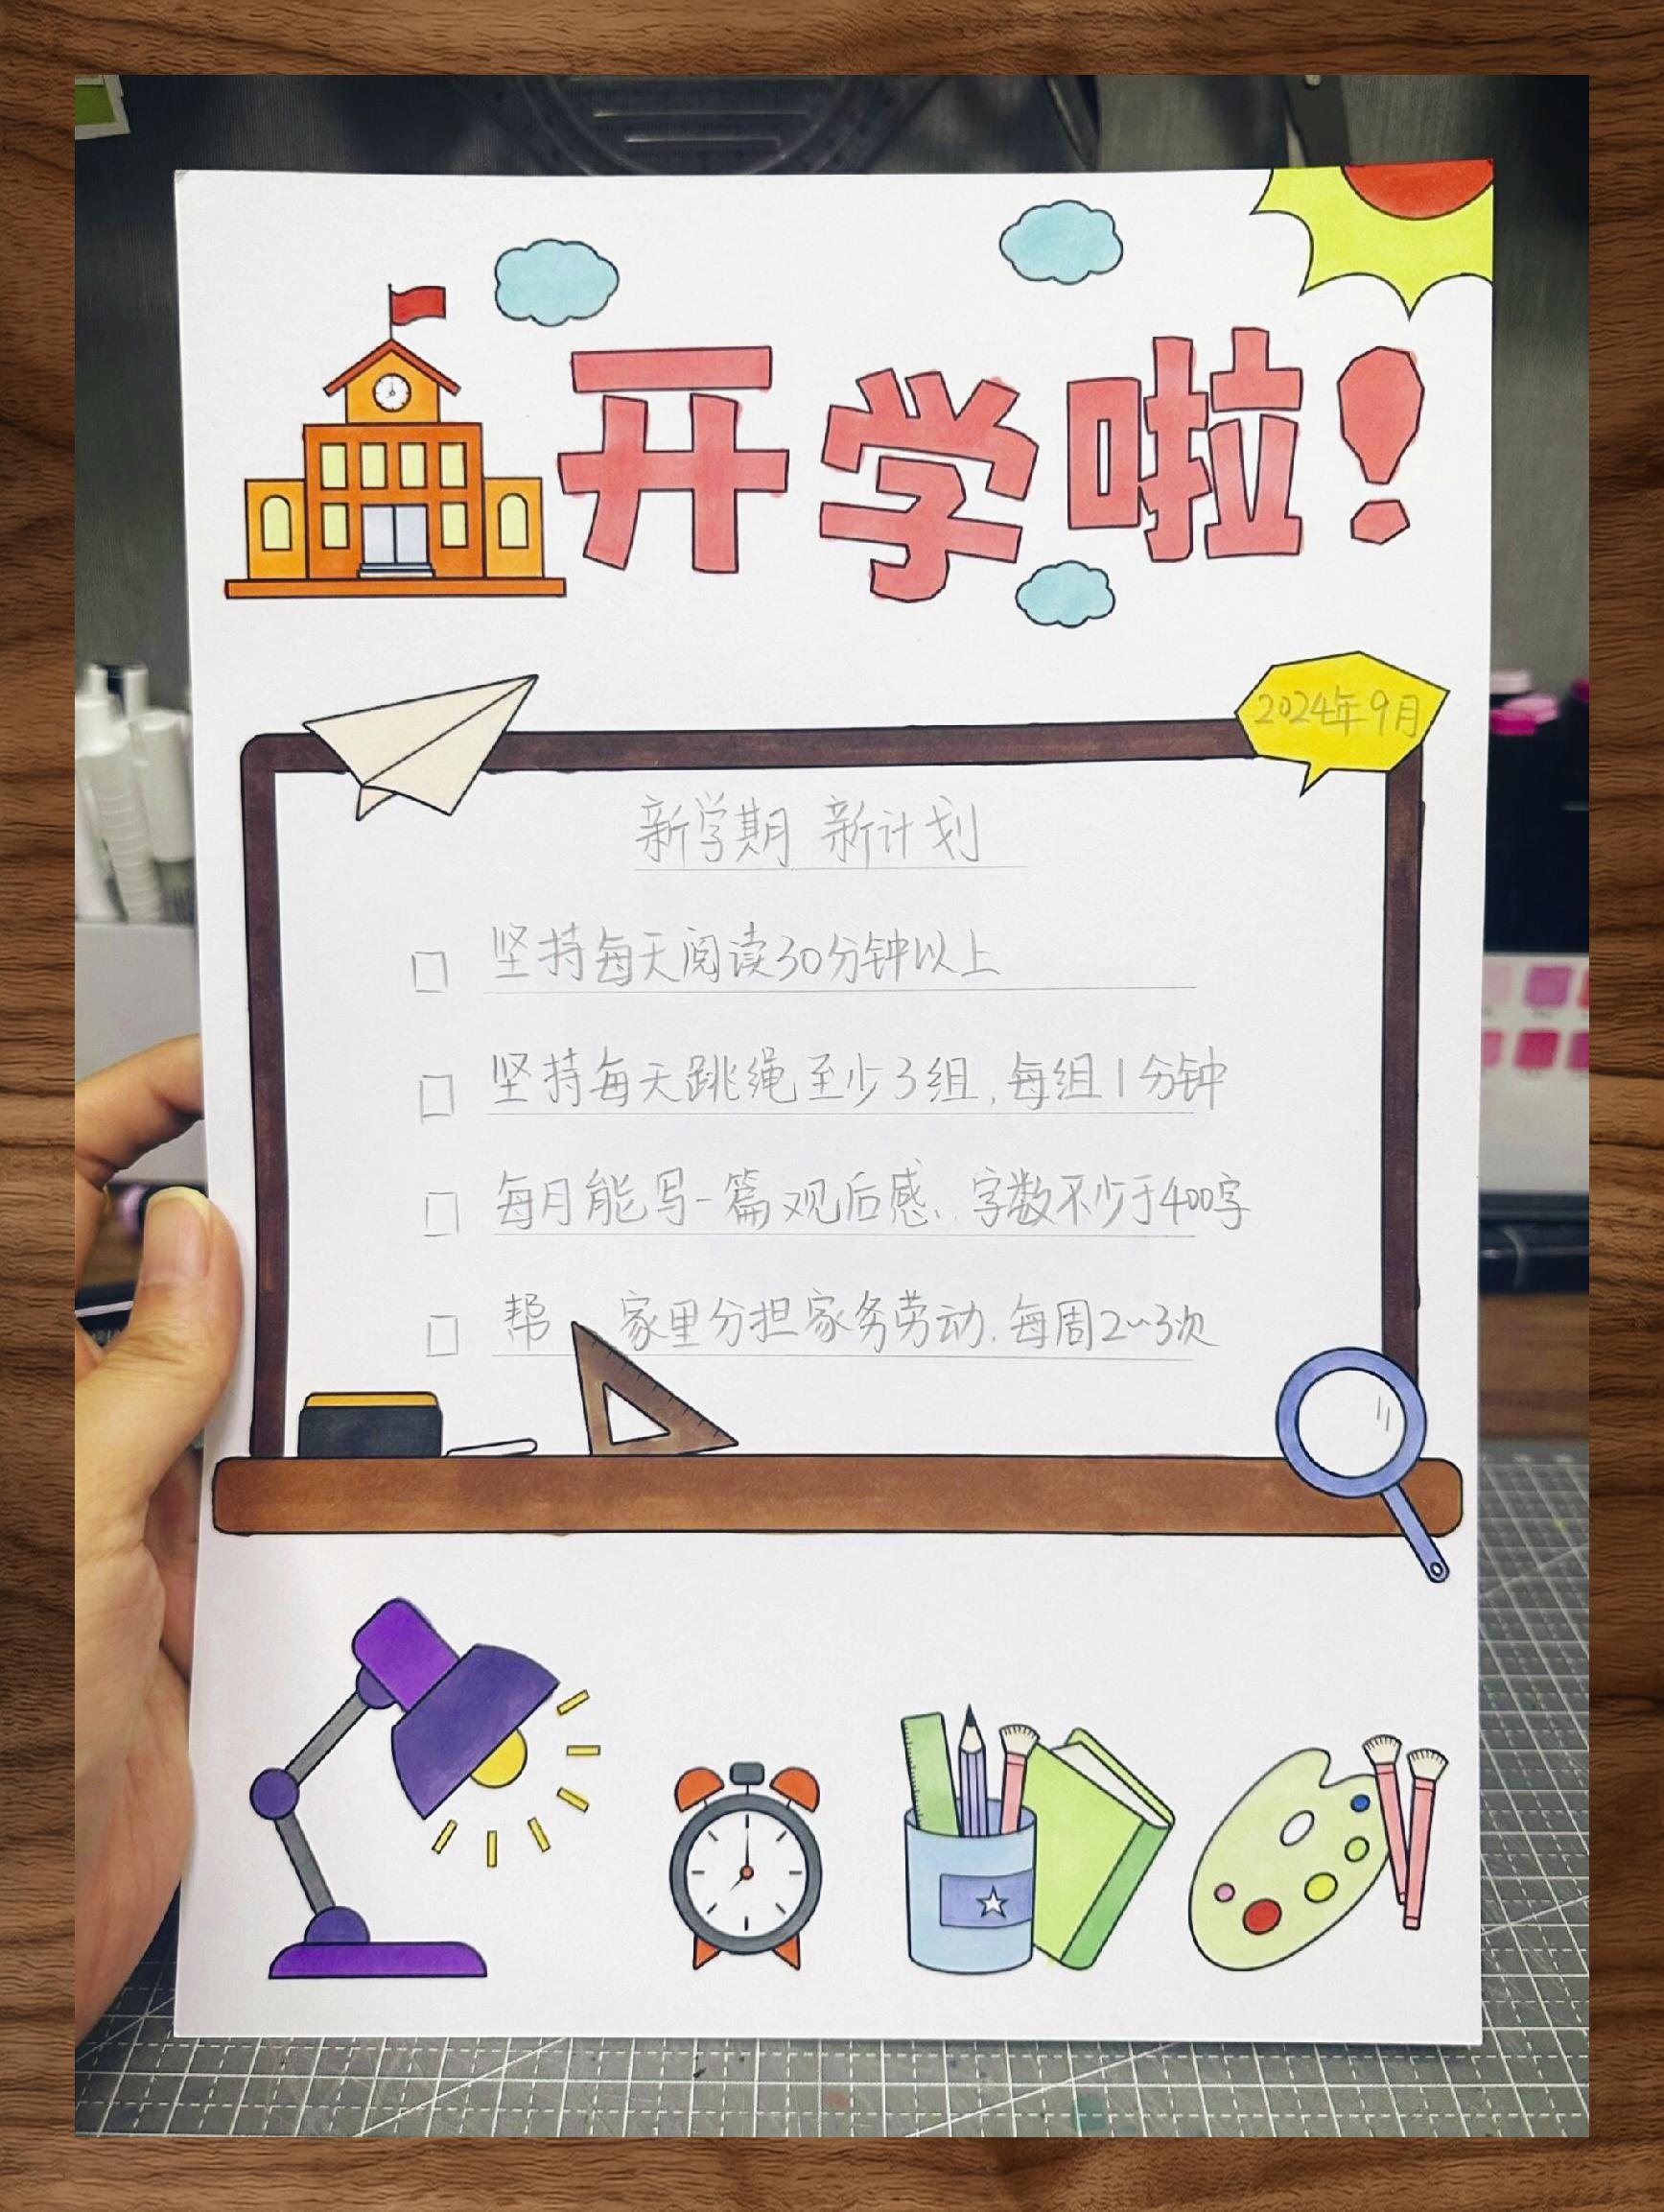 开学啦!
2024年9月
新学期 新计划
坚持每天阅读30分钟以上
坚持每天跳绳至少3组,每组1分钟
每月能写一篇观后感,字数不少于400字
帮 家里分担家务劳动,每周2~3次